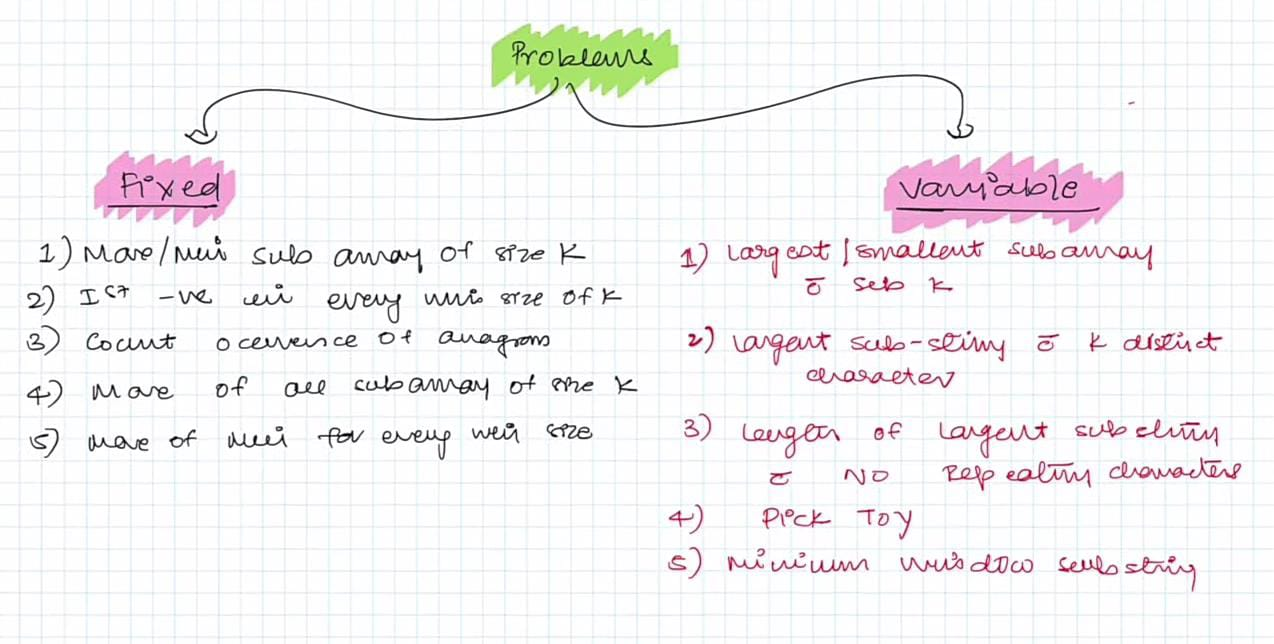 Problems
Fixed
Variable
1) Max/Min sub array of size K
2) Ist -ve in every win size of K
3) Count occurence of anagram
4) Max of all subarray of size K
5) Max of Min for every win size
1) Largest/smallest subarray
c̄ sum K
2) Largest sub-string c̄ K distinct
character
3) Length of largest substring
c̄ NO Repeating characters
4) Pick TOY
5) Minimum window substring